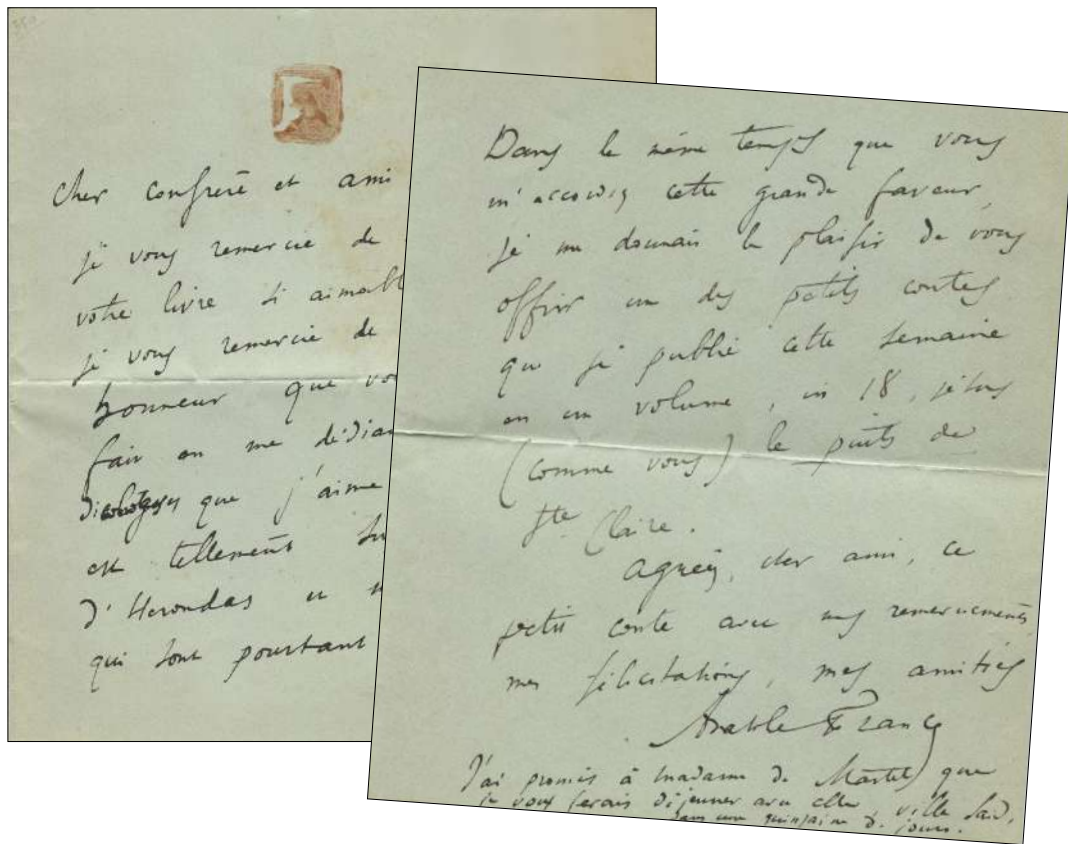 Cher confrère et ami
je vous remercie de
votre livre si aimabl
je vous remercie de
honneur que vo
fait en me dédian
dialogues que j'aime
est tellement su
d'Herondas et
qui sont pourtant
Dans le même temps que vous
m'accordiez cette grande faveur,
je me donnais le plaisir de vous
offrir un des petits contes
que je publie cette semaine
en un volume, in 18, jésus
(comme vous) le puits de
Ste Claire.
Agréez, cher ami, ce
petit conte avec mes remerciements
mes félicitations, mes amitiés
Anatole France
J'ai promis à madame de Martel que
je vous ferais déjeuner avec elle, villa Saïd,
dans une quinzaine de jours.